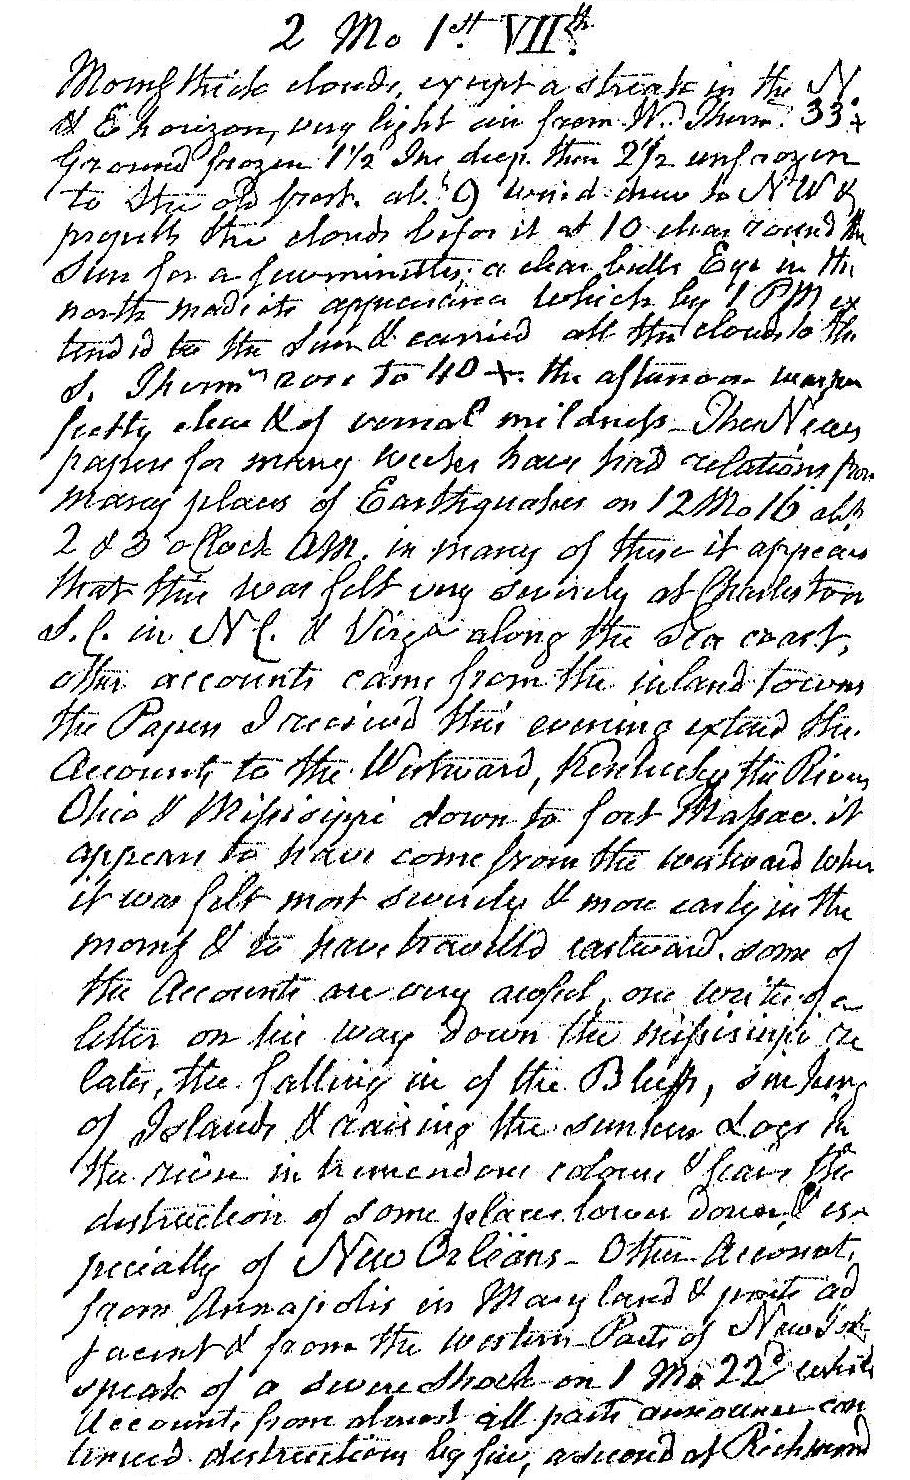 2 Mo 1st. VIIth.
Morng thick clouds, except a streak in the N
& E horizon, very light air from W. Therm. 33°+
Ground frozen 1 1/2 Inc deep. then 2 1/2 unfrozen
to the old frost. abt. 9 wind drew to NW &
propells the clouds befor it at 10 clear round the
Sun for a few minites; a clear bulls Eye in the
north made its appearance which by 1 PM ex
tend'd to the Sun & carried all the clouds to the
S. Therm rose to 40+. the afternoon was
pretty clear & of vernal mildness_ The News
papers for many weeks have had relations from
many places of Earthquakes on 12 Mo 16 abt.
2 & 3 oClock AM. in many of these it appears
that this was felt very severely at Charleston
S. C. in N C. & Virga along the Sea coast,
other accounts came from the inland towns
the Papers I received this evening extend the
Accounts to the Westward, Kentucky the Rivers
Ohio & Missisippi down to fort Massac. it
appears to have come from the westward wher
it was felt most severely & more early in the
morng & to have travelld eastward. some of
the Accounts are very awful, one writes a
letter on his way down the missisippi re
lates, the falling in of the Bluffs, sinking
of Islands & raising the sunken Logs in
the river in tremendous colums & fears the
distruction of some places lower down, & es
pecially of New Orleans_ Other Accounts,
from Annapolis in Maryland & parts ad
jacent & from the western Parts of New York
speak of a severe Shock on 1 Mo 22d while
Accounts from almost all parts announce con
tinued distructions by fire, a second at Richmond